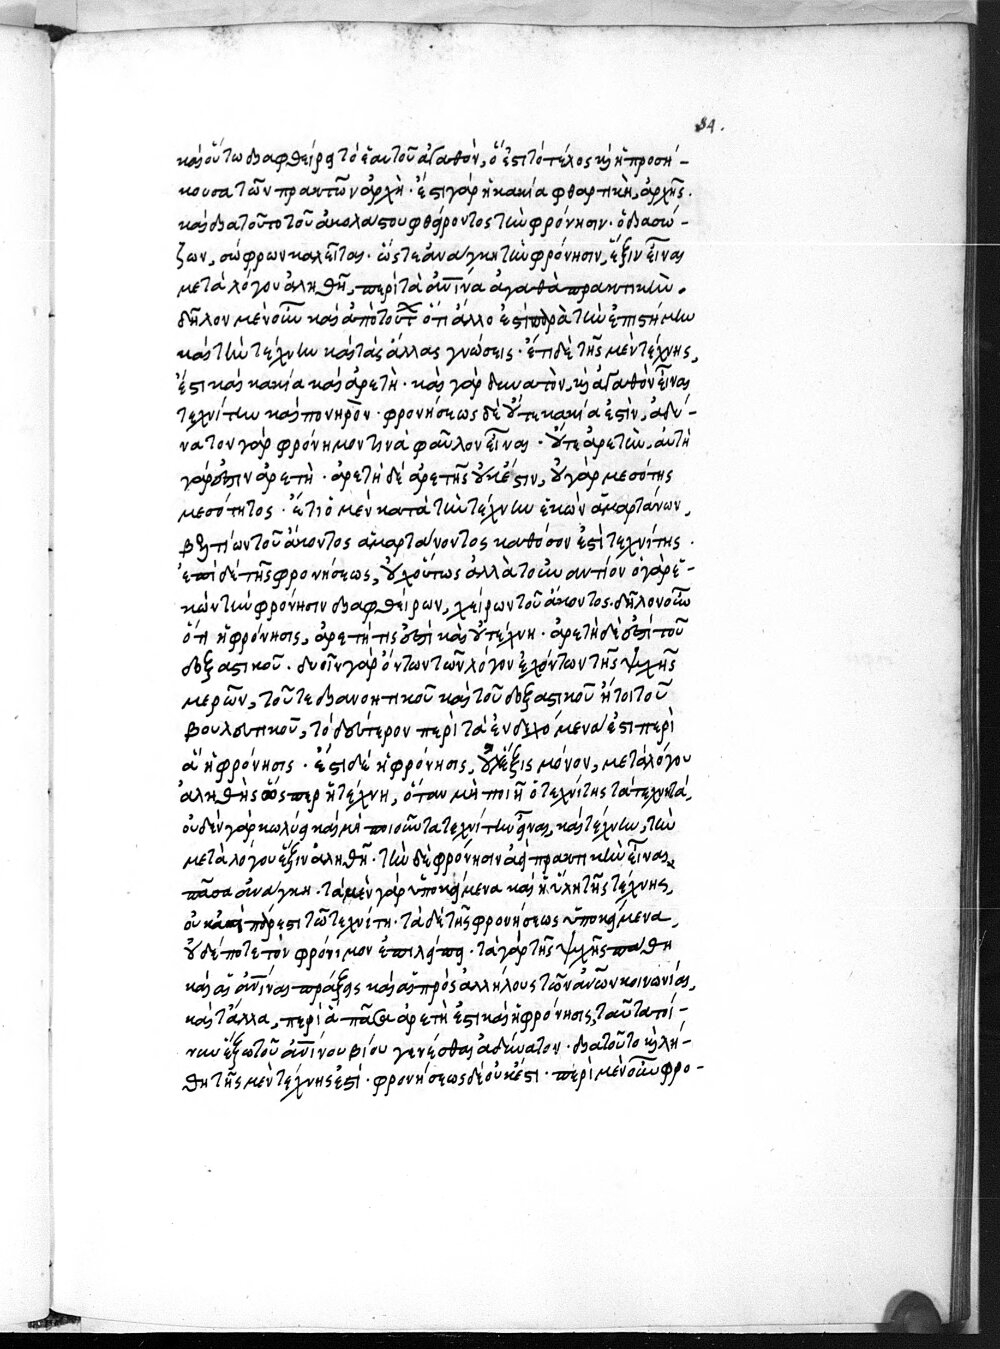 84.
καὶ οὕτω διαφθείρει τὸ ἑαυτοῦ ἀγαθὸν, ὅ ἐστι τὸ τέλος καὶ ἡ προσή-
κουσα τῶν πρακτῶν ἀρχή· ἔστι γὰρ ἡ κακία φθαρτικὴ ἀρχῆς.
καὶ διὰ τοῦτο τοῦ ἀκολάστου φθείροντος τὴν φρόνησιν· ὁ διασώ-
ζων, σώφρων καλεῖται· ὥστε ἀνάγκη τὴν φρόνησιν, ἕξιν εἶναι
μετὰ λόγου ἀληθῆ, περὶ τὰ ἀνθρώπινα ἀγαθὰ πρακτικὴν.
δῆλον μὲν οὖν καὶ ἀπὸ τούτου ὅτι ἄλλο ἐστὶ παρὰ τὴν ἐπιστήμην
καὶ τὴν τέχνην καὶ τὰς ἄλλας γνώσεις· ἔτι δὲ τῆς μὲν τέχνης,
ἔστι καὶ κακία καὶ ἀρετή· καὶ γὰρ δυνατὸν, καὶ ἀγαθὸν εἶναι
τεχνίτην καὶ πονηρὸν· φρονήσεως δὲ οὔτε κακία ἐστὶν, ἀδύ-
νατον γὰρ φρόνημον τινὰ φαῦλον εἶναι· οὔτε ἀρετὴν. αὐτὴ
γάρ ἐστιν ἀρετὴ· ἀρετὴ δὲ ἀρετῆς οὐκ ἔστιν, οὐ γὰρ μεσότης
μεσότητος· ἔτι ὁ μὲν κατὰ τὴν τέχνην ἑκὼν ἁμαρτάνων,
βελτίων τοῦ ἄκοντος ἁμαρτάνοντος καθόσον ἐστὶ τεχνίτης.
ἐπὶ δὲ τῆς φρονήσεως, οὐχ οὕτως ἀλλὰ τοὐναντίον ὁ γὰρ ἑ-
κὼν τὴν φρόνησιν διαφθείρων, χείρων τοῦ ἄκοντος. δῆλον οὖν
ὅτι ἡ φρόνησις, ἀρετή τις ἐστὶ καὶ οὐ τέχνη· ἀρετὴ δὲ ἐστὶ τοῦ
δοξαστικοῦ· δυοῖν γὰρ ὄντων τῶν λόγον ἐχόντων τῆς ψυχῆς
μερῶν, τοῦ τε διανοητικοῦ καὶ τοῦ δοξαστικοῦ ἤτοι τοῦ
βουλευτικοῦ, τὸ δεύτερον περὶ τὰ ἐνδεχόμενα ἐστι περὶ
ἃ ἡ φρόνησις· ἔστι δὲ ἡ φρόνησις, οὐχ ἕξις μόνον, μετὰ λόγου
ἀληθὴς ὥσπερ ἡ τέχνη, ὅταν μὴ ποιῇ ὁ τεχνίτης τὰ τεχνητά,
οὐδὲν γὰρ κωλύει καὶ μὴ ποιοῦντα τεχνίτην εἶναι, καὶ τέχνην, τὴν
μετὰ λόγου ἕξιν ἀληθῆ· τὴν δὲ φρόνησιν ἀεὶ πρακτικὴν εἶναι
πᾶσα ἀνάγκη· τὰ μὲν γὰρ ὑποκείμενα καὶ ἡ ὕλη τῆς τέχνης,
οὐκ ἀεὶ πάρεστι τῷ τεχνίτῃ· τὰ δὲ τῆς φρονήσεως ὑποκείμενα,
οὐδέποτε τὸν φρόνιμον ἐπιλείπει· τὰ γὰρ τῆς ψυχῆς πάθη
καὶ αἱ ἀνθρώπιναι πράξεις καὶ αἱ πρὸς ἀλλήλους τῶν ἀνθρώπων κοινωνίαι,
καὶ τἄλλα, περὶ ἃ πᾶσα ἀρετή ἐστι καὶ ἡ φρόνησις, ταῦτα τοί-
νυν ἔξω τοῦ ἀνθρωπίνου βίου γενέσθαι ἀδύνατον· διὰ τοῦτο καὶ λή-
θη τῆς μὲν τέχνης ἐστί· φρονήσεως δὲ οὐκ ἔστι· περὶ μὲν οὖν φρο-